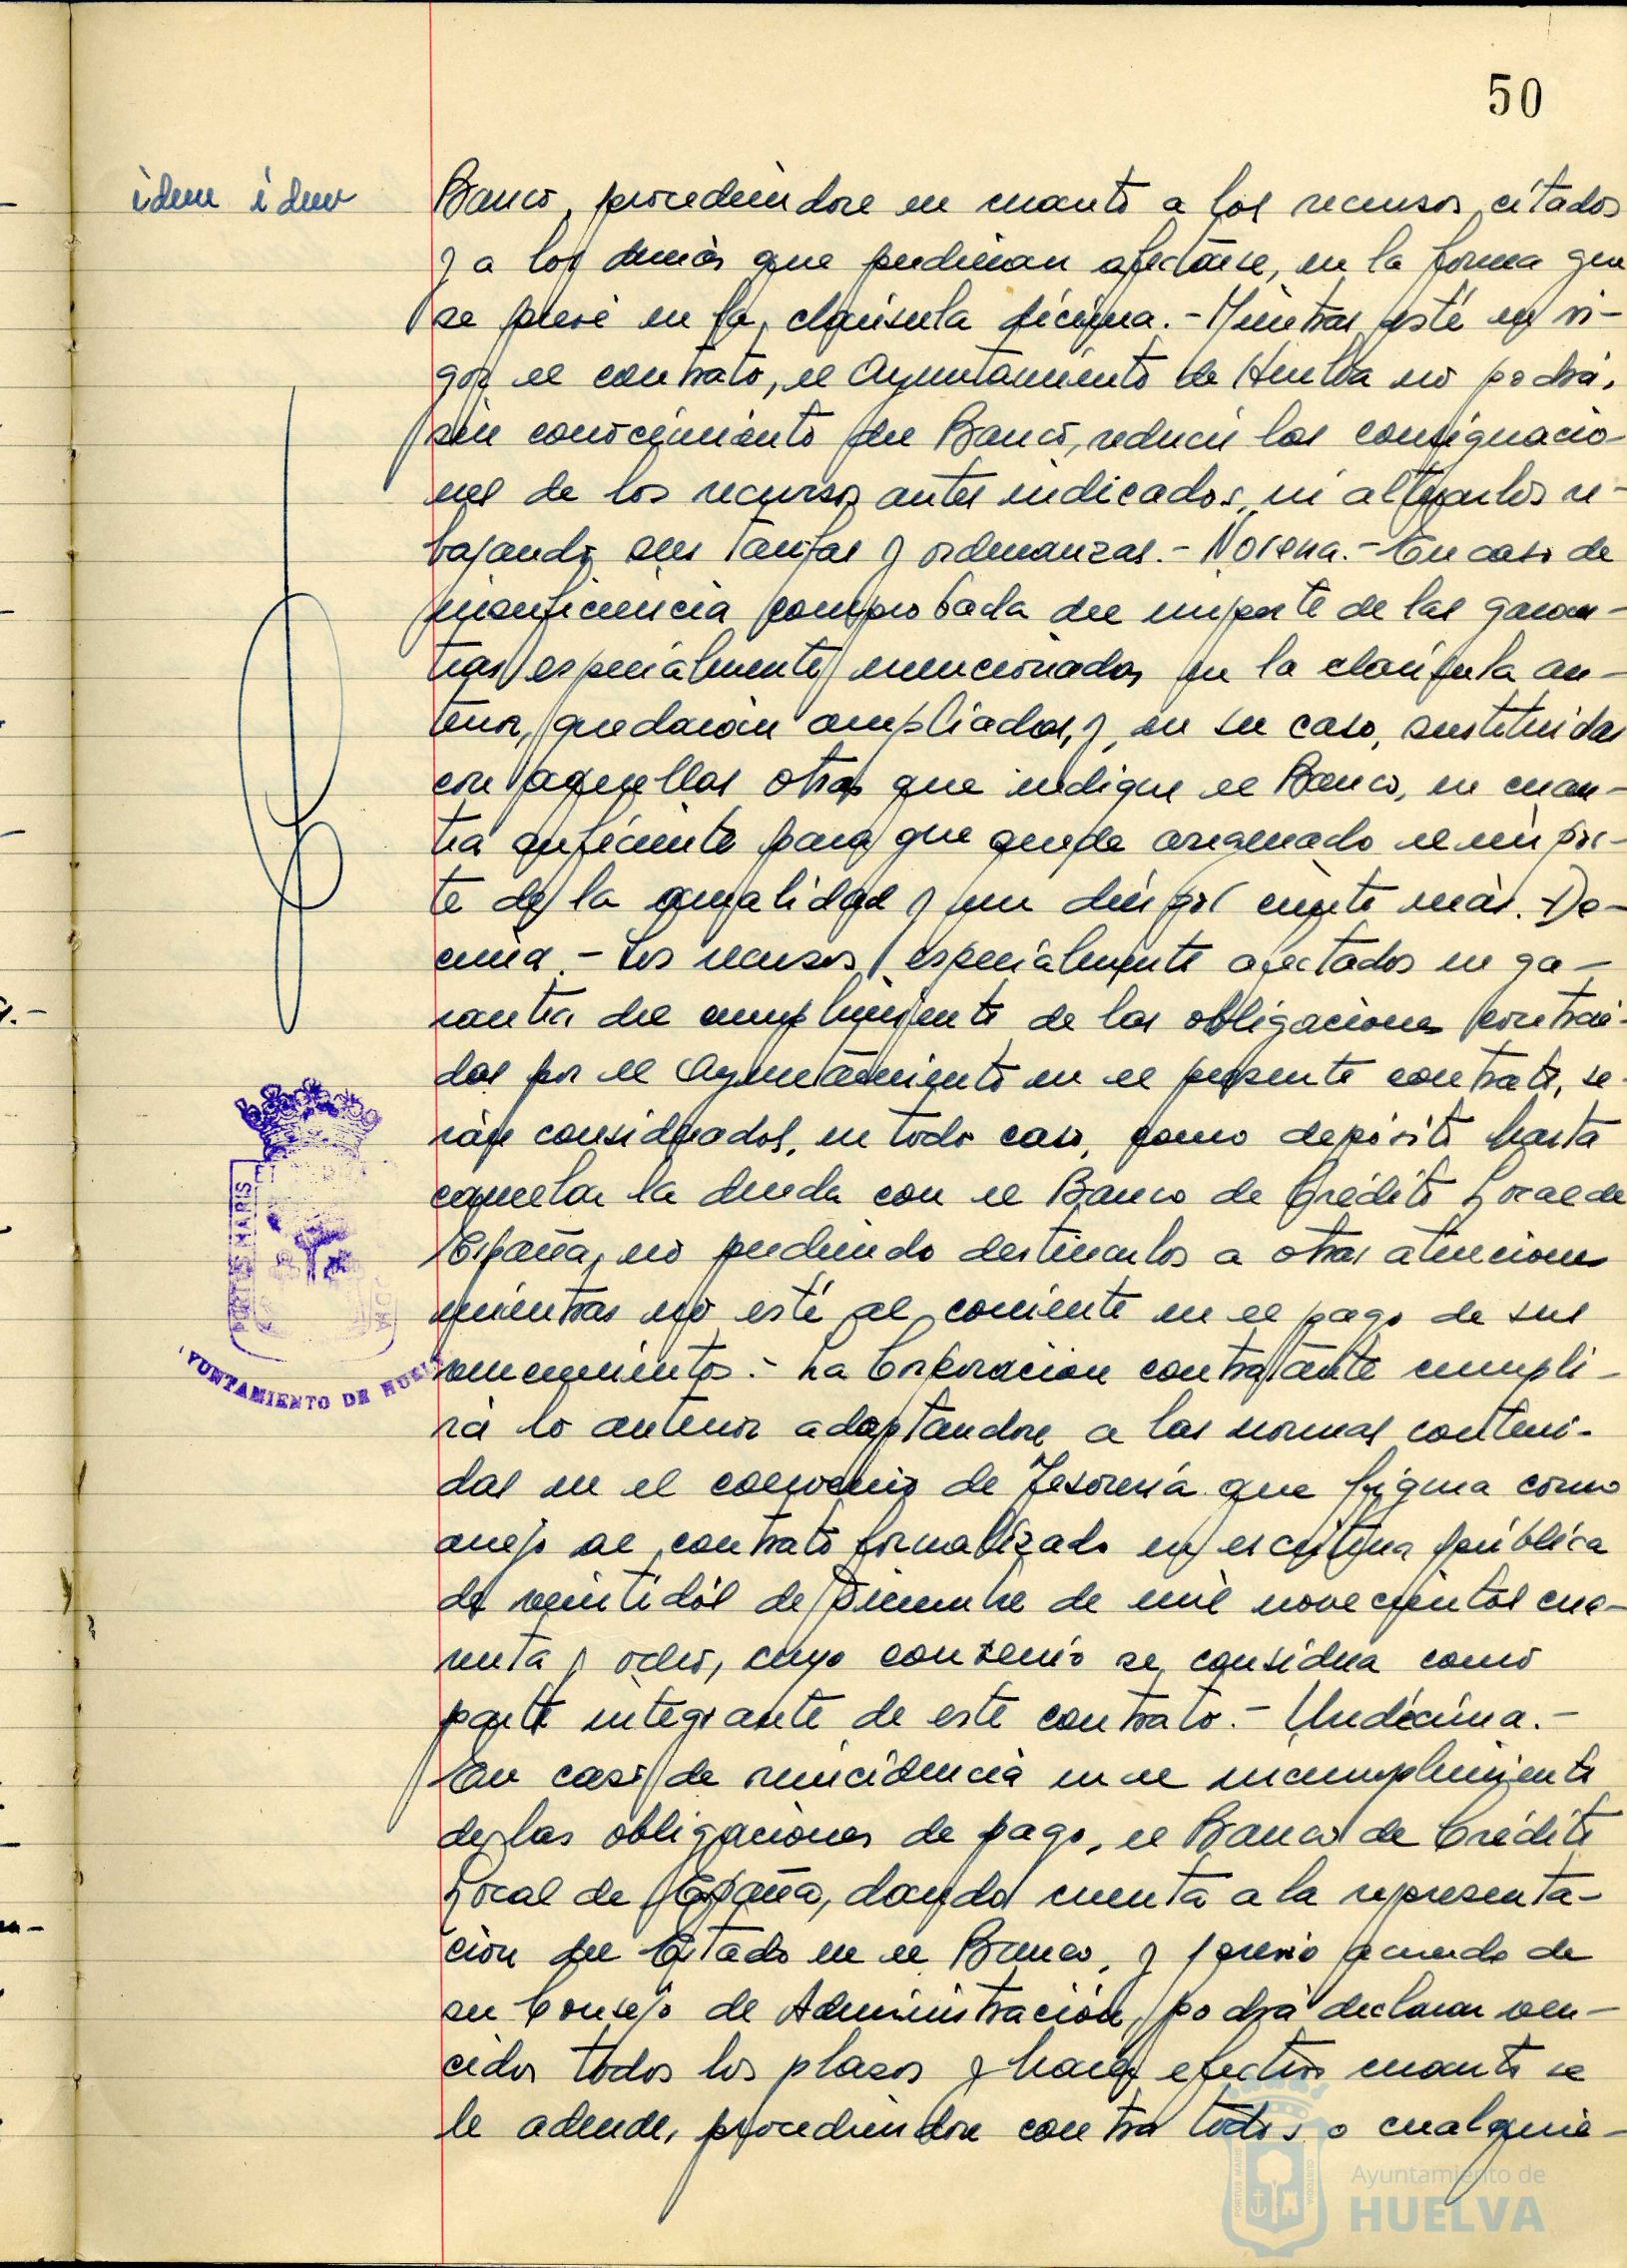 50
idem idem
Banco, procediéndose en cuanto a los recursos citados
y a los demás que pudieran afectarse, en la forma que
se prevé en la cláusula décima.- Mientras esté en vi-
gor el contrato, el Ayuntamiento de Huelva no podrá,
sin conocimiento del Banco, reducir las consignacio-
nes de los recursos antes indicados, ni alterarlos re-
bajando sus tarifas y ordenanzas.- Novena.- En caso de
insuficiencia comprobada del importe de las garan-
tías especialmente mencionadas en la cláusula an-
terior, quedarán ampliadas, y, en su caso, sustituidas
con aquellas otras que indique el Banco, en cuan-
tía suficiente para que quede asegurado el impor-
te de la anualidad y un diez por ciento más.- Dé-
cima.- Los recursos especialmente afectados en ga-
rantía del cumplimiento de las obligaciones contraí-
das por el Ayuntamiento en el presente contrato, se-
rán considerados, en todo caso, como depósito hasta
cancelar la deuda con el Banco de Crédito Local de
España, no pudiendo destinarlos a otras atenciones
mientras no esté al corriente en el pago de sus
vencimientos.- La Corporación contratante cumpli-
rá lo anterior adaptándose a las normas conteni-
das en el convenio de Tesorería que figura como
anejo al contrato formalizado en escritura pública
de veintidós de Diciembre de mil novecientos cua-
renta y ocho, cuyo convenio se considera como
parte integrante de este contrato.- Undécima.-
En caso de reincidencia en el incumplimiento
de las obligaciones de pago, el Banco de Crédito
Local de España, dando cuenta a la representa-
ción del Estado en el Banco, y previo acuerdo de
su Consejo de Administración, podrá declarar ven-
cidos todos los plazos y hacer efectivo cuanto se
le adeude, procediéndose contra todos o cualquie-
PORTUS MARIS
AYUNTAMIENTO DE HUELVA
Ayuntamiento de
HUELVA